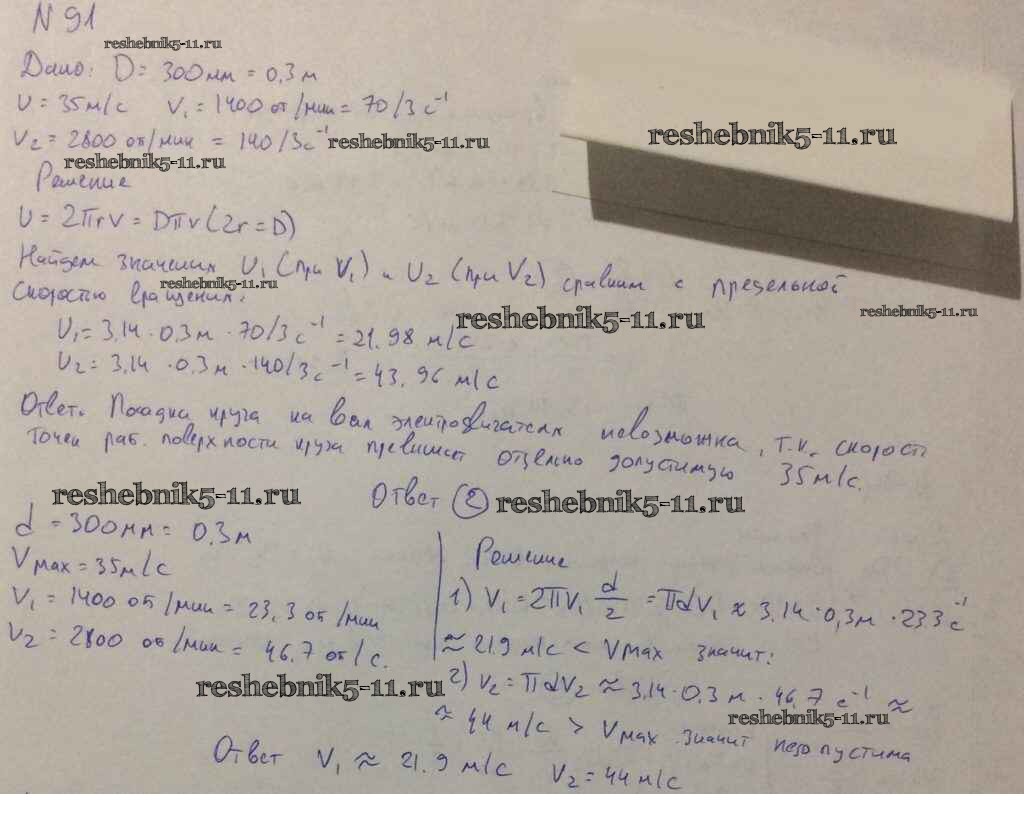 N 91
reshebnik5-11.ru
Дано: D = 300 мм = 0,3 м
υ = 35 м/с V₁ = 1400 об/мин = 70/3 с⁻¹
reshebnik5-11.ru
V₂ = 2800 об/мин = 140/3 с⁻¹ reshebnik5-11.ru
reshebnik5-11.ru
Решение
υ = 2πrν = Dπν (2r = D)
Найдем значения υ₁ (при V₁) и υ₂ (при V₂) сравним с предельной
скоростью вращения:
reshebnik5-11.ru
reshebnik5-11.ru
reshebnik5-11.ru
υ₁ = 3,14 · 0,3 м · 70/3 с⁻¹ = 21.98 м/с
υ₂ = 3,14 · 0,3 м · 140/3 с⁻¹ = 43,96 м/с
Ответ. Посадка круга на вал электродвигателя невозможна, т.к. скорость
точек раб. поверхности круга превышает допустимую 35 м/с.
reshebnik5-11.ru Ответ (2) reshebnik5-11.ru
d = 300 мм = 0,3 м
Vmax = 35 м/с
V₁ = 1400 об/мин = 23,3 об/мин
V₂ = 2800 об/мин = 46.7 об/с.
reshebnik5-11.ru
Решение
1) V₁ = 2πV₁ d/2 = πdV₁ ≈ 3,14 · 0,3 м · 233 с⁻¹
≈ 21,9 м/с < Vmax значит:
2) V₂ = πdV₂ ≈ 3,14 · 0,3 м · 46,7 с⁻¹ ≈
reshebnik5-11.ru
≈ 44 м/с > Vmax значит недопустима
Ответ V₁ ≈ 21.9 м/с V₂ = 44 м/с